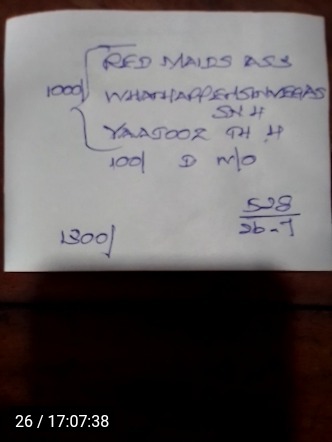 RED MAIDS AS3
1000/ WHATHAPPENSINVEGAS
SN 4
YAAJOOZ TH 4
100/ D W/O
528
26-7
1300/
26 / 17:07:38